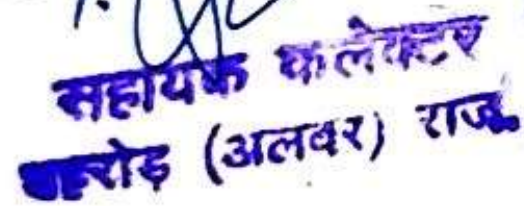 सहायक कलेक्टर
बहरोड़ (अलवर) राज.